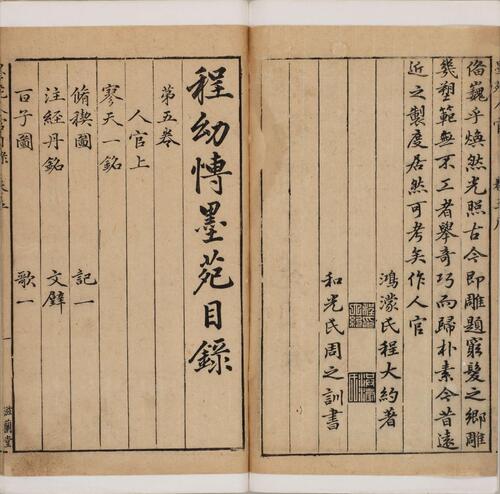 偹巍乎煥然光照古今即雕題窮髮之鄉雕
幾塑範無不工者舉奇巧而歸朴素今昔遠
近之製度居然可考矣作人官
鴻濛氏程大約著
和光氏周之訓書
程幼博墨苑目錄
第五卷
人官上
寥天一銘
脩禊圖 記一
注經丹銘 文璧
百子圖 歌一
一
滋蘭堂